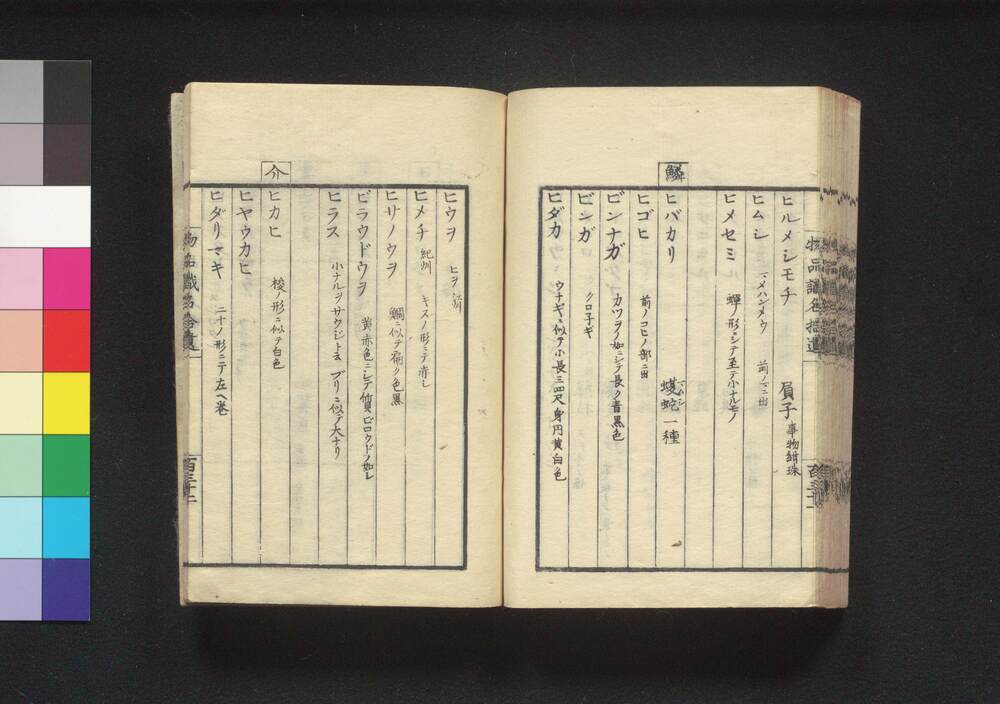 物品識名拾遺
ヒルメシモチ 屓子 事物紺珠
ヒムシ マメハンメウ 前ノマニ出
ヒメセミ 蟬ノ形ニシテ至テ小ナルモノ
鱗
ヒバカリ 蝮蛇一種
ヒゴヒ 前ノコヒノ部ニ出
ビンナガ カツヲノ如ニシテ長ク青黒色
ビンガ クロ子ギ
ヒダカ ウナギニ似テ小長三四尺身円黄白色
ヒウヲ ヒヲ
ヒメチ 紀州 キスノ形ニテ赤シ
ヒサノウヲ 鯛ニ似テ扁ク色黒
ビラウドウヲ 黄赤色ニシテ質ビロウドノ如レ
ヒラス 小ナルヲサウジト云 ブリニ似テ大ナリ
介
ヒカヒ 梭ノ形ニ似テ白色
ヒヤウカヒ
ヒダリマキ ニナノ形ニテ左ヘ巻